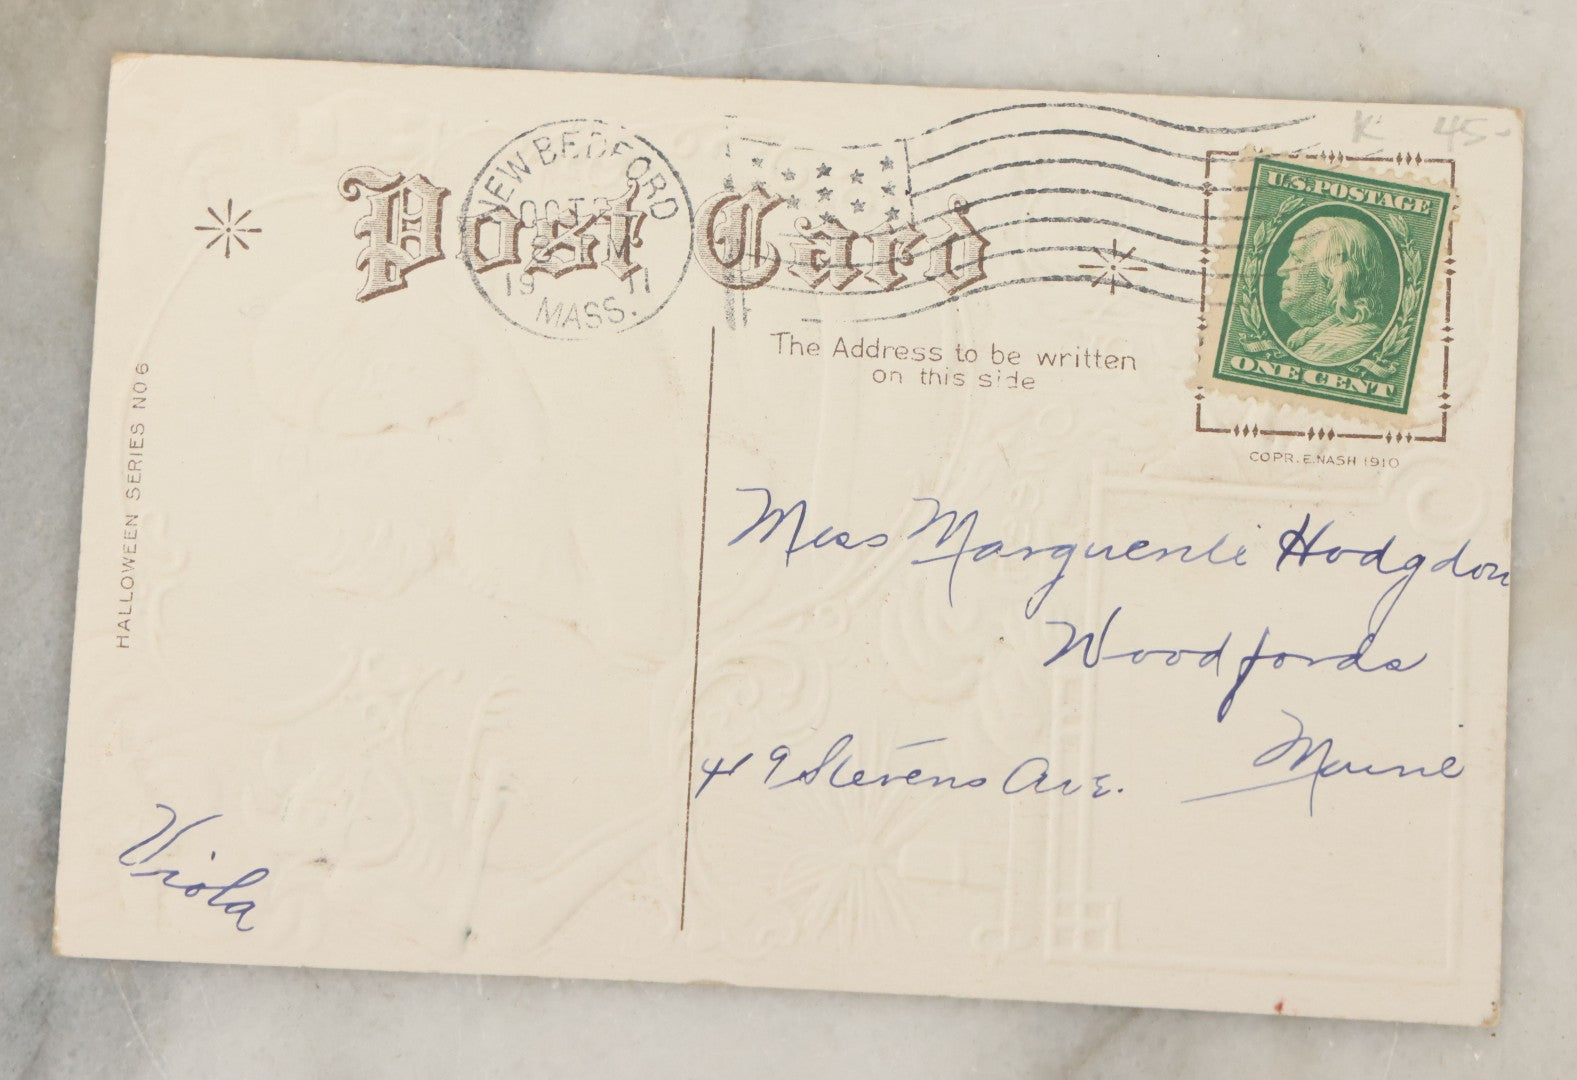 K 45-
NEW BEDFORD
OCT
M
19 11
MASS.
Post Card
U.S. POSTAGE
ONE CENT
The Address to be written
on this side
COPR. E. NASH 1910
HALLOWEEN SERIES NO 6
Miss Marguerite Hodgdon
Woodfords
49 Stevens Ave. Maine
Viola